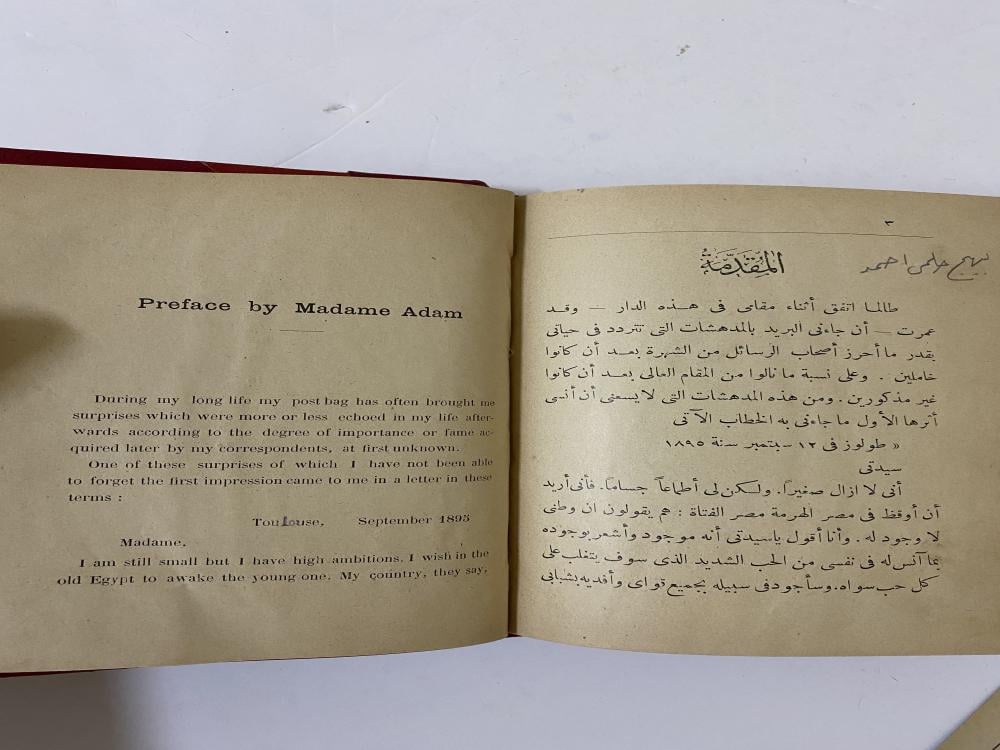 Preface by Madame Adam
During my long life my post bag has often brought me
surprises which were more or less echoed in my life after-
wards according to the degree of importance or fame ac-
quired later by my correspondents, at first unknown.
One of these surprises of which I have not been able
to forget the first impression came to me in a letter in these
terms :
Toulouse, September 1895
Madame,
I am still small but I have high ambitions. I wish in the
old Egypt to awake the young one. My country, they say,
٣
المُقَدِّمَةُ
بهيج حلمى احمد
طالما اتفق أثناء مقامى فى هذه الدار — وقد
عمرت — أن جاءنى البريد بالمدهشات التى تتردد فى حياتى
بقدر ما أحرز أصحاب الرسائل من الشهرة بعد أن كانوا
خاملين . وعلى نسبة ما نالوا من المقام العالى بعد أن كانوا
غير مذكورين . ومن هذه المدهشات التى لا يسعنى أن أنسى
أثرها الأول ما جاءنى به الخطاب الآتى
« طولوز فى ١٢ سبتمبر سنة ١٨٩٥
سيدتى
أنى لا ازال صغيراً . ولكن لى أطماعاً جساماً . فأنى أريد
أن أوقظ فى مصر الهرمة مصر الفتاة : هم يقولون ان وطنى
لا وجود له . وأنا أقول ياسيدتى أنه موجود وأشعر بوجوده
بما آنس له فى نفسى من الحب الشديد الذى سوف يتغلب على
كل حب سواه . وسأجود فى سبيله بجميع قواى وأفديه بشبابى